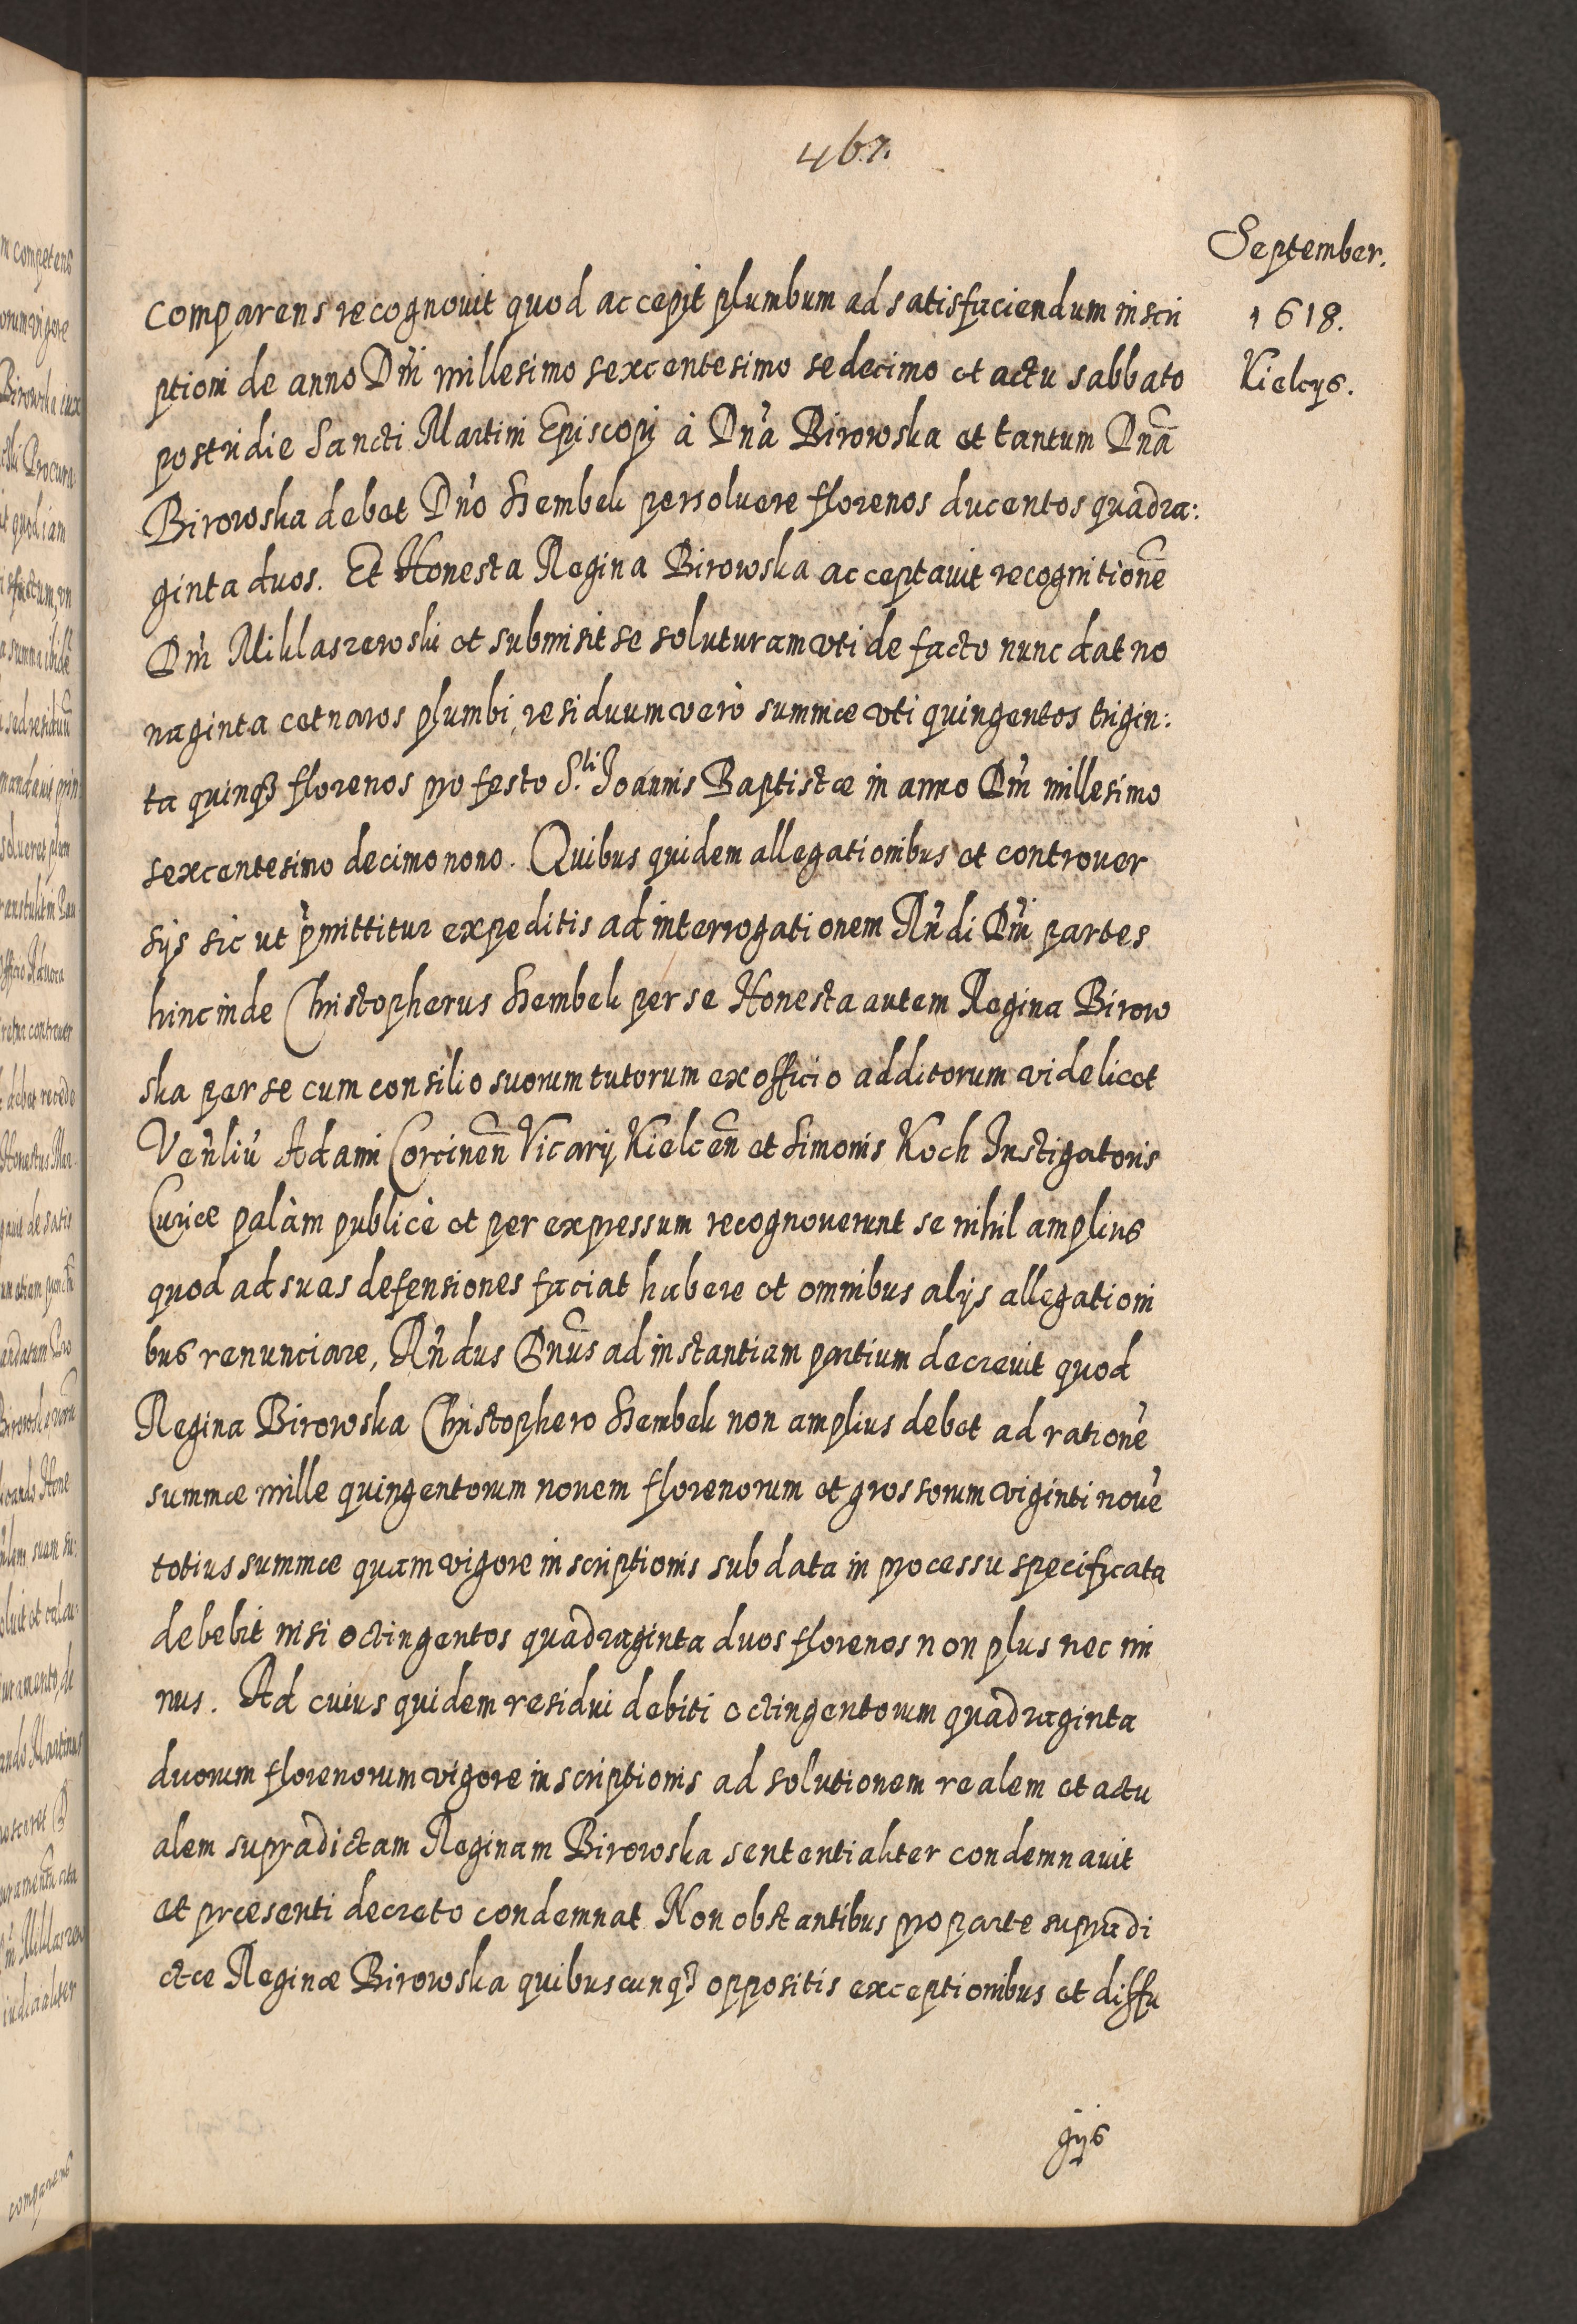 467.
September.
1618.
Kielcys.
comparens recognouit quod accepit plumbum ad satisfaciendum inscri
ptioni de anno Dni millesimo sexcentesimo sedecimo et actu sabbato
postridie Sancti Martini Episcopi à Dna Birowska et tantum Dna
Birowska debet Dno Hembek persoluere florenos ducentos quadra:
ginta duos. Et Honesta Regina Birowska acceptauit recognitionē
Dni Miklaszewski et submisit se soluturam vti de facto nunc dat no
naginta cetnaros plumbi, residuum verò summæ vti quingentos trigin:
ta quinqȝ florenos pro festo S.ti Joannis Baptistæ in anno Dni millesimo
sexcentesimo decimo nono. Quibus quidem allegationibus et controuer
sijs sic ut pmittitur expeditis ad interrogationem Rndi Dni partes
hinc inde Christopherus Hembek per se Honesta autem Regina Birow
ska per se cum consilio suorum tutorum ex officio additorum videlicet
Venliū Adami Corcinen Vicarij Kielcen et Simonis Koch Instigatoris
Curiæ palàm publicè et per expressum recognouerunt se nihil amplius
quod ad suas defensiones faciat habere et omnibus alijs allegationi
bus renunciare, Rndus Dnus ad instantiam partium decreuit quod
Regina Birowska Christophero Hembek non amplius debet ad rationē
summæ mille quingentorum nouem florenorum et grossorum viginti nouē
totius summæ quam vigore inscriptionis sub data in processu specificata
debebit nisi octingentos quadraginta duos florenos non plus nec mi
nus. Ad cuius quidem residui debiti octingentorum quadraginta
duorum florenorum vigore inscriptionis ad solutionem realem et actu
alem supradictam Reginam Birowska sententialiter condemnauit
et præsenti decreto condemnat. Non obstantibus pro parte supradi
ctæ Reginæ Birowska quibuscunqȝ oppositis exceptionibus et diffu
gijs